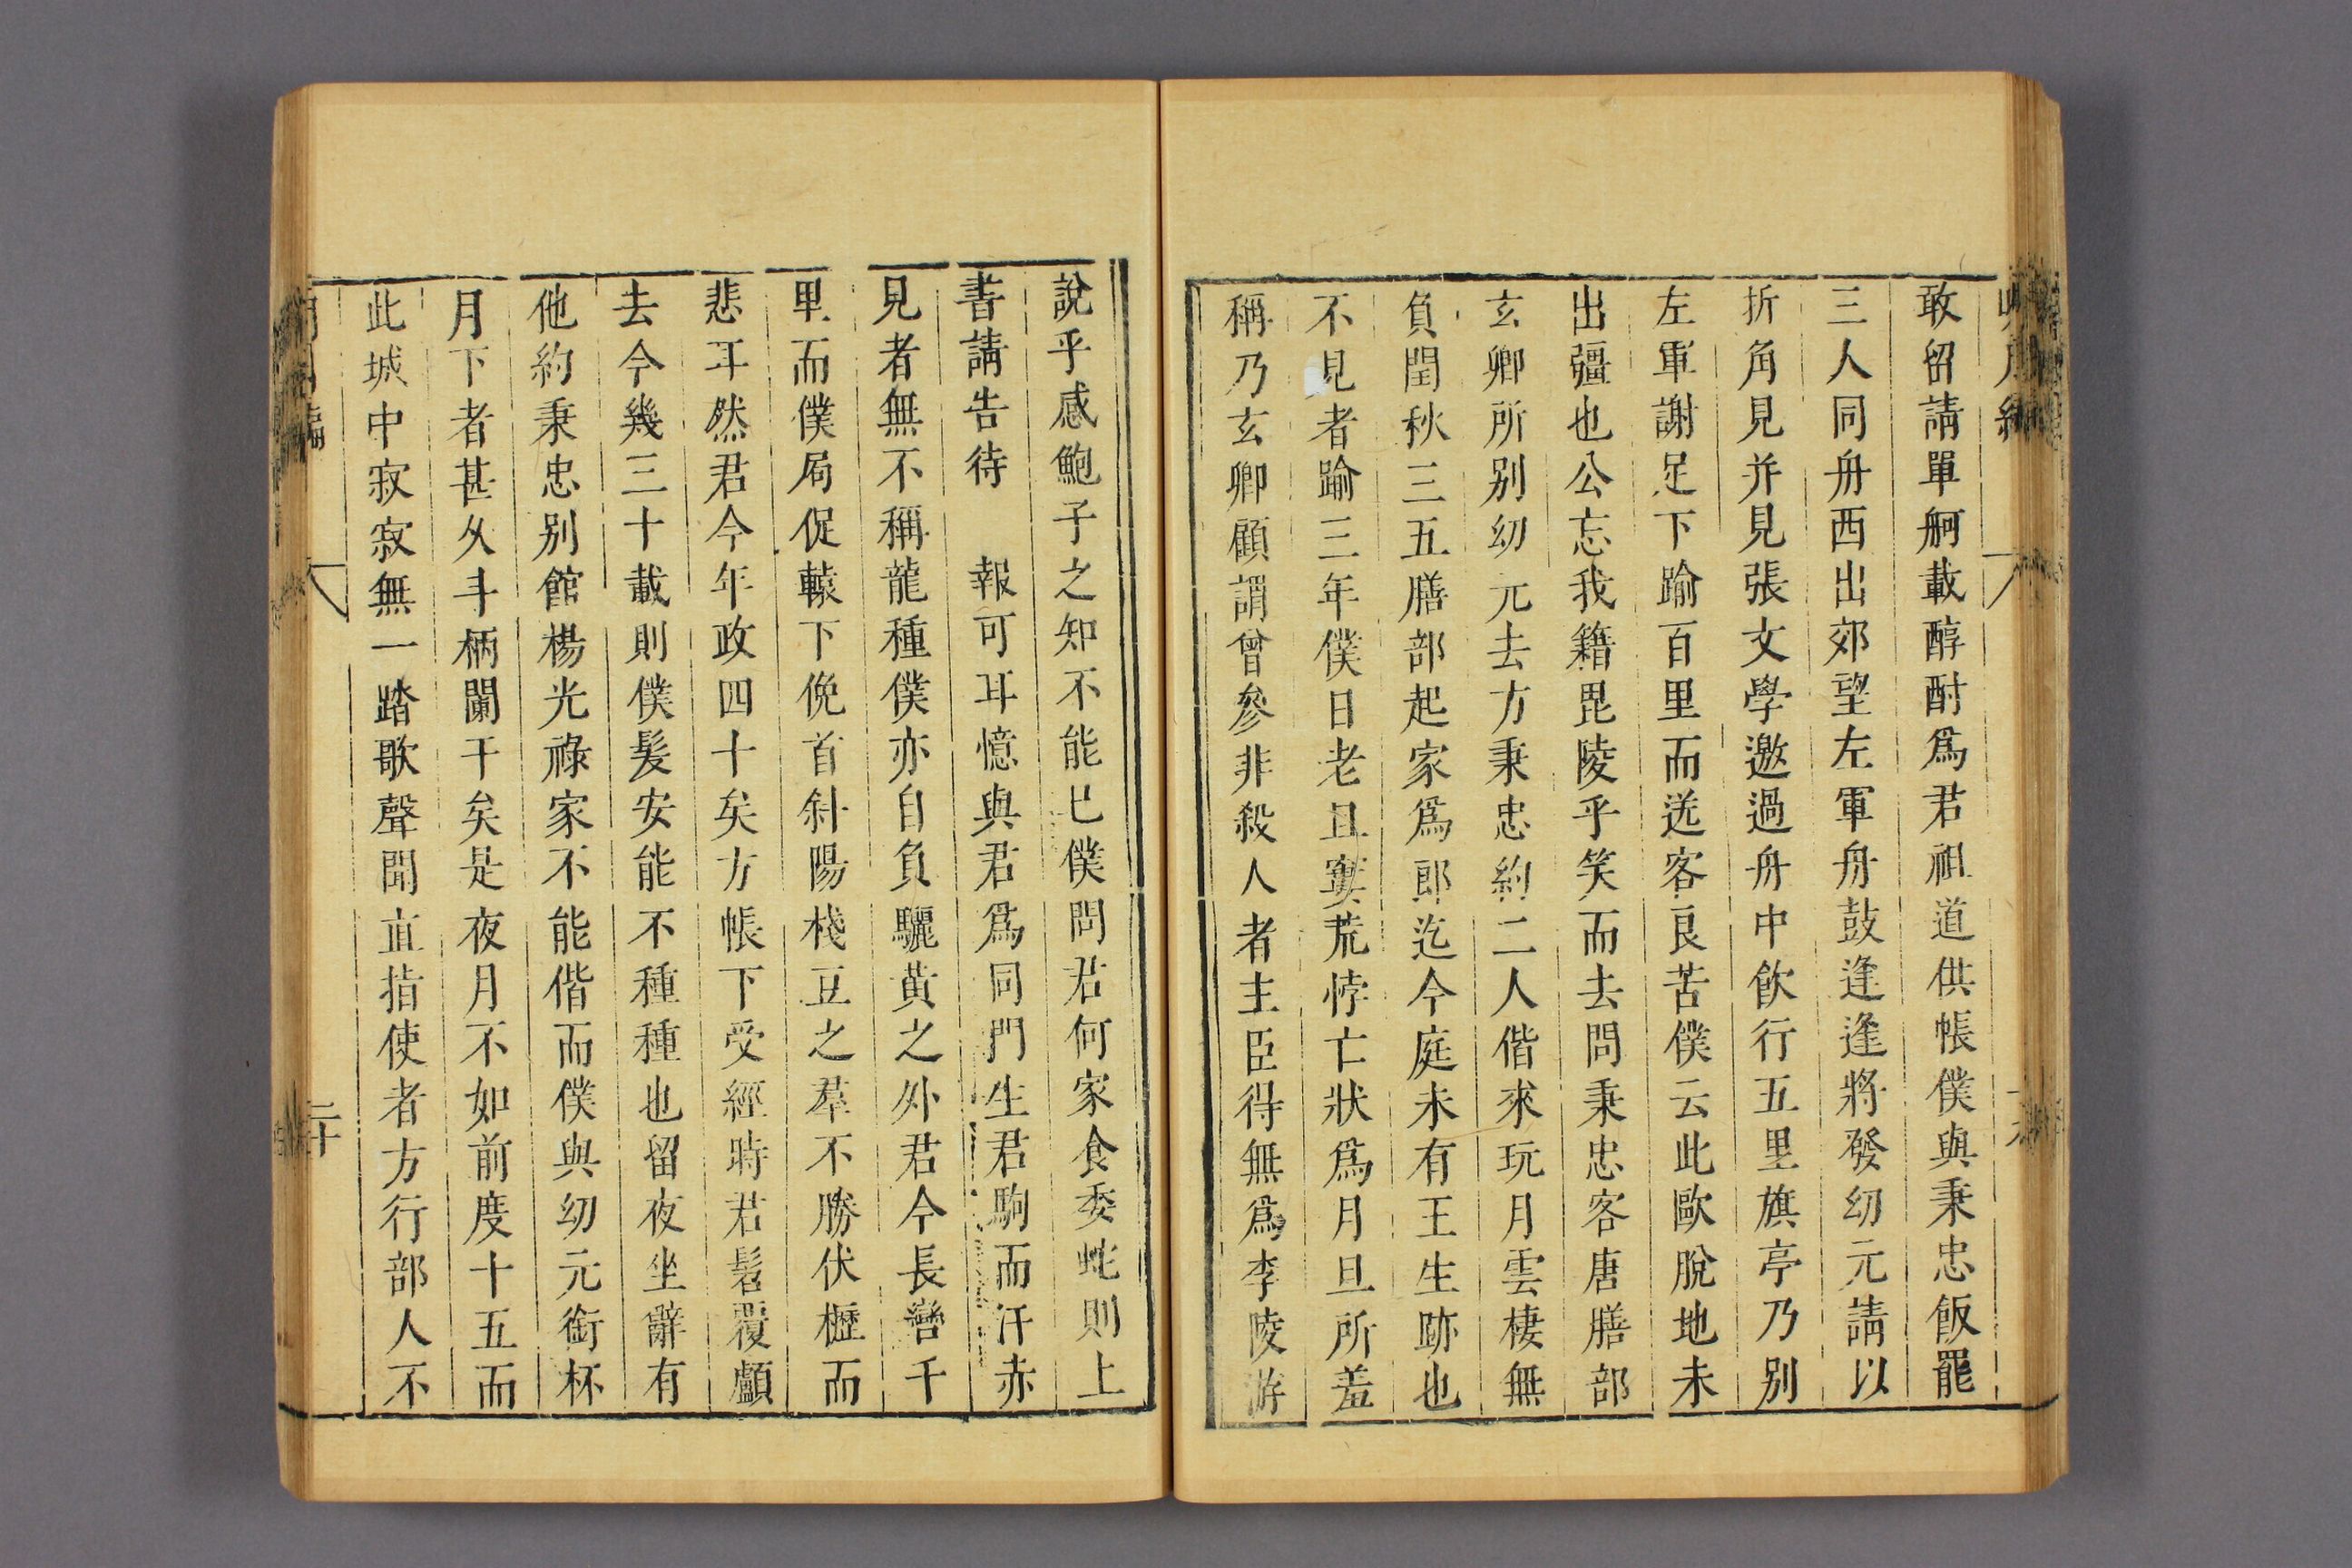 敢留請單舸載醇酎爲君祖道供帳僕與秉忠飯罷
三人同舟西出郊望左軍舟鼓逢逢將發幼元請以
折角見并見張文學邀過舟中飮行五里旗亭乃別
左軍謝足下踰百里而送客良苦僕云此歐脫地未
出疆也公忘我籍毘陵乎笑而去問秉忠客唐膳部
玄卿所別幼元去方秉忠約二人偕來玩月雲棲無
負閏秋三五膳部起家爲郎迄今庭未有王生跡也
不見者踰三年僕日老且寠荒悖亡狀爲月旦所羞
稱乃玄卿顧謂曾參非殺人者主臣得無爲李陵游
說乎感鮑子之知不能已僕問君何家食委蛇則上
書請告待 報可耳憶與君爲同門生君駒而汗赤
見者無不稱龍種僕亦自負驪黃之外君今長轡千
里而僕局促轅下俛首斜陽棧豆之羣不勝伏櫪而
悲耳然君今年政四十矣方帳下受經時君髫覆顱
去今幾三十載則僕髮安能不種種也留夜坐辭有
他約秉忠別館楊光祿家不能偕而僕與幼元銜杯
月下者甚久斗柄闌干矣是夜月不如前度十五而
此城中寂寂無一踏歌聲聞直指使者方行部人不
二十